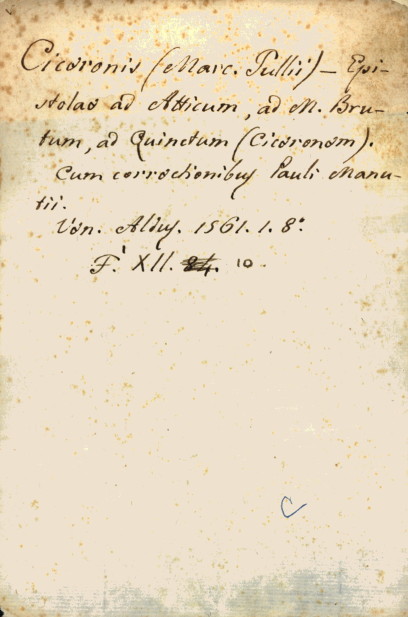 Ciceronis (Marc. Tullii) – Epi-
stolae ad Atticum, ad M. Bru-
tum, ad Quinctum (Ciceronem).
Cum correctionibus Pauli Manu-
tii.
Ven. Aldus. 1561. 1. 8°.
F. XII. 10.
C